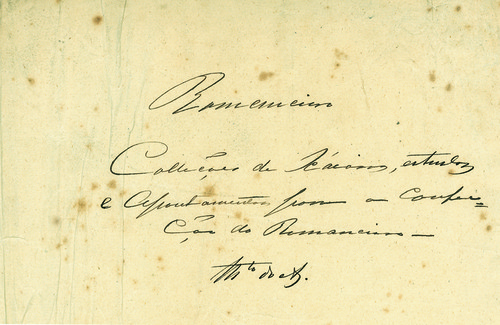 Romanceiro
Collecções de Xácaras, estudos
e Apontamentos para a confei=
ção do Romanceiro —